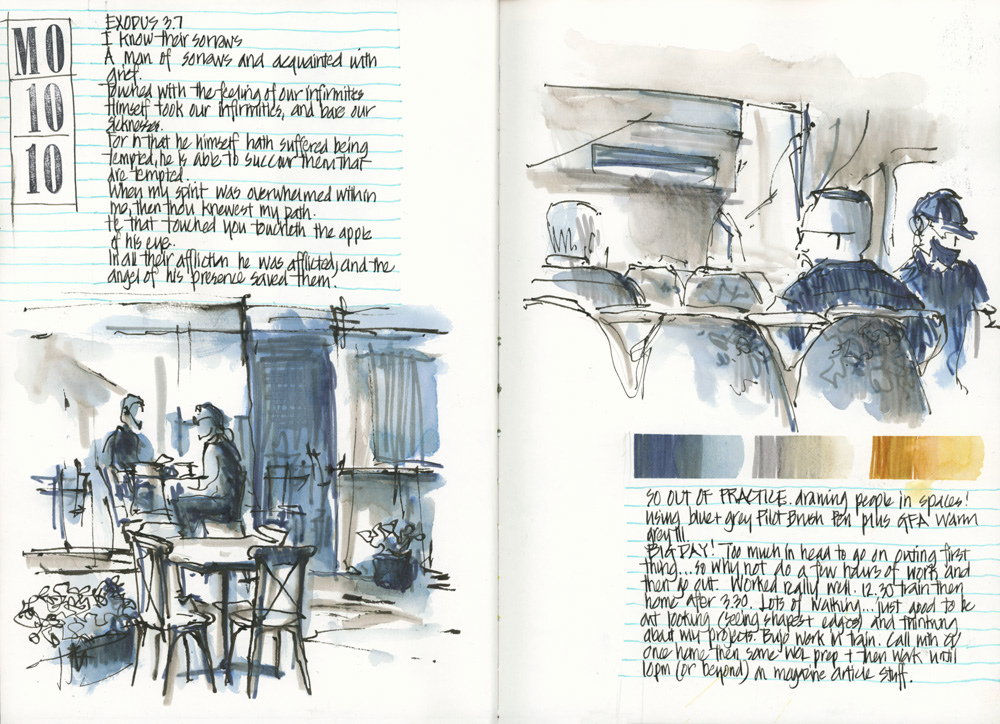 MO
10
10
EXODUS 3.7
I know their sorrows
A man of sorrows and acquainted with
grief.
Touched with the feeling of our infirmities
Himself took our infirmities, and bare our
sicknesses.
For in that he himself hath suffered being
tempted, he is able to succour them that
are tempted.
When my spirit was overwhelmed within
me, then thou knewest my path.
He that touched you toucheth the apple
of his eye.
In all their affliction he was afflicted, and the
angel of his presence saved them.
SO OUT OF PRACTICE. drawing people in spaces!
using blue + grey Pilot Brush Pen plus GFA warm
grey III.
BIG DAY! Too much in head to go on outing first
thing... so why not do a few hours of work and
then go out. Worked really well. 12.30 train then
home after 3.30. Lots of walking... just good to be
out looking (seeing shapes + edges) and thinking
about my projects. Bujo work in train. Call with
once home then some prep + then work until
10pm (or beyond) on magazine article stuff.